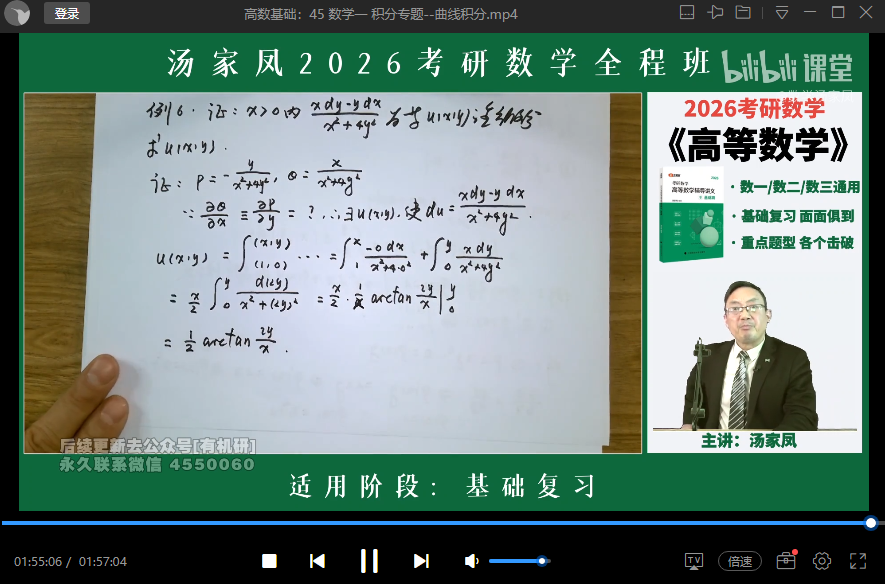 登录
高数基础：45 数学一 积分专题--曲线积分.mp4
汤家凤2026考研数学全程班
bilibili课堂
例6. 证: x>0内 (xdy-ydx)/(x²+4y²) 为某u(x,y)全微分
求u(x,y).
证: P = -y/(x²+4y²), Q = x/(x²+4y²)
∵ ∂Q/∂x ≡ ∂P/∂y = ? ∴∃u(x,y). 使 du = (xdy-ydx)/(x²+4y²).
u(x,y) = ∫_(1,0)^(x,y) ··· = ∫_1^x (-0dx)/(x²+4·0²) + ∫_0^y xdy/(x²+4y²)
= x/2 ∫_0^y d(2y)/(x²+(2y)²) = x/2 · 1/x arctan 2y/x |_0^y
= 1/2 arctan 2y/x.
后续更新去公众号[有机研]
永久联系微信 4550060
2026考研数学
《高等数学》
·数一/数二/数三通用
·基础复习 面面俱到
·重点题型 各个击破
主讲：汤家凤
适用阶段：基础复习
01:55:06 / 01:57:04
TV
倍速